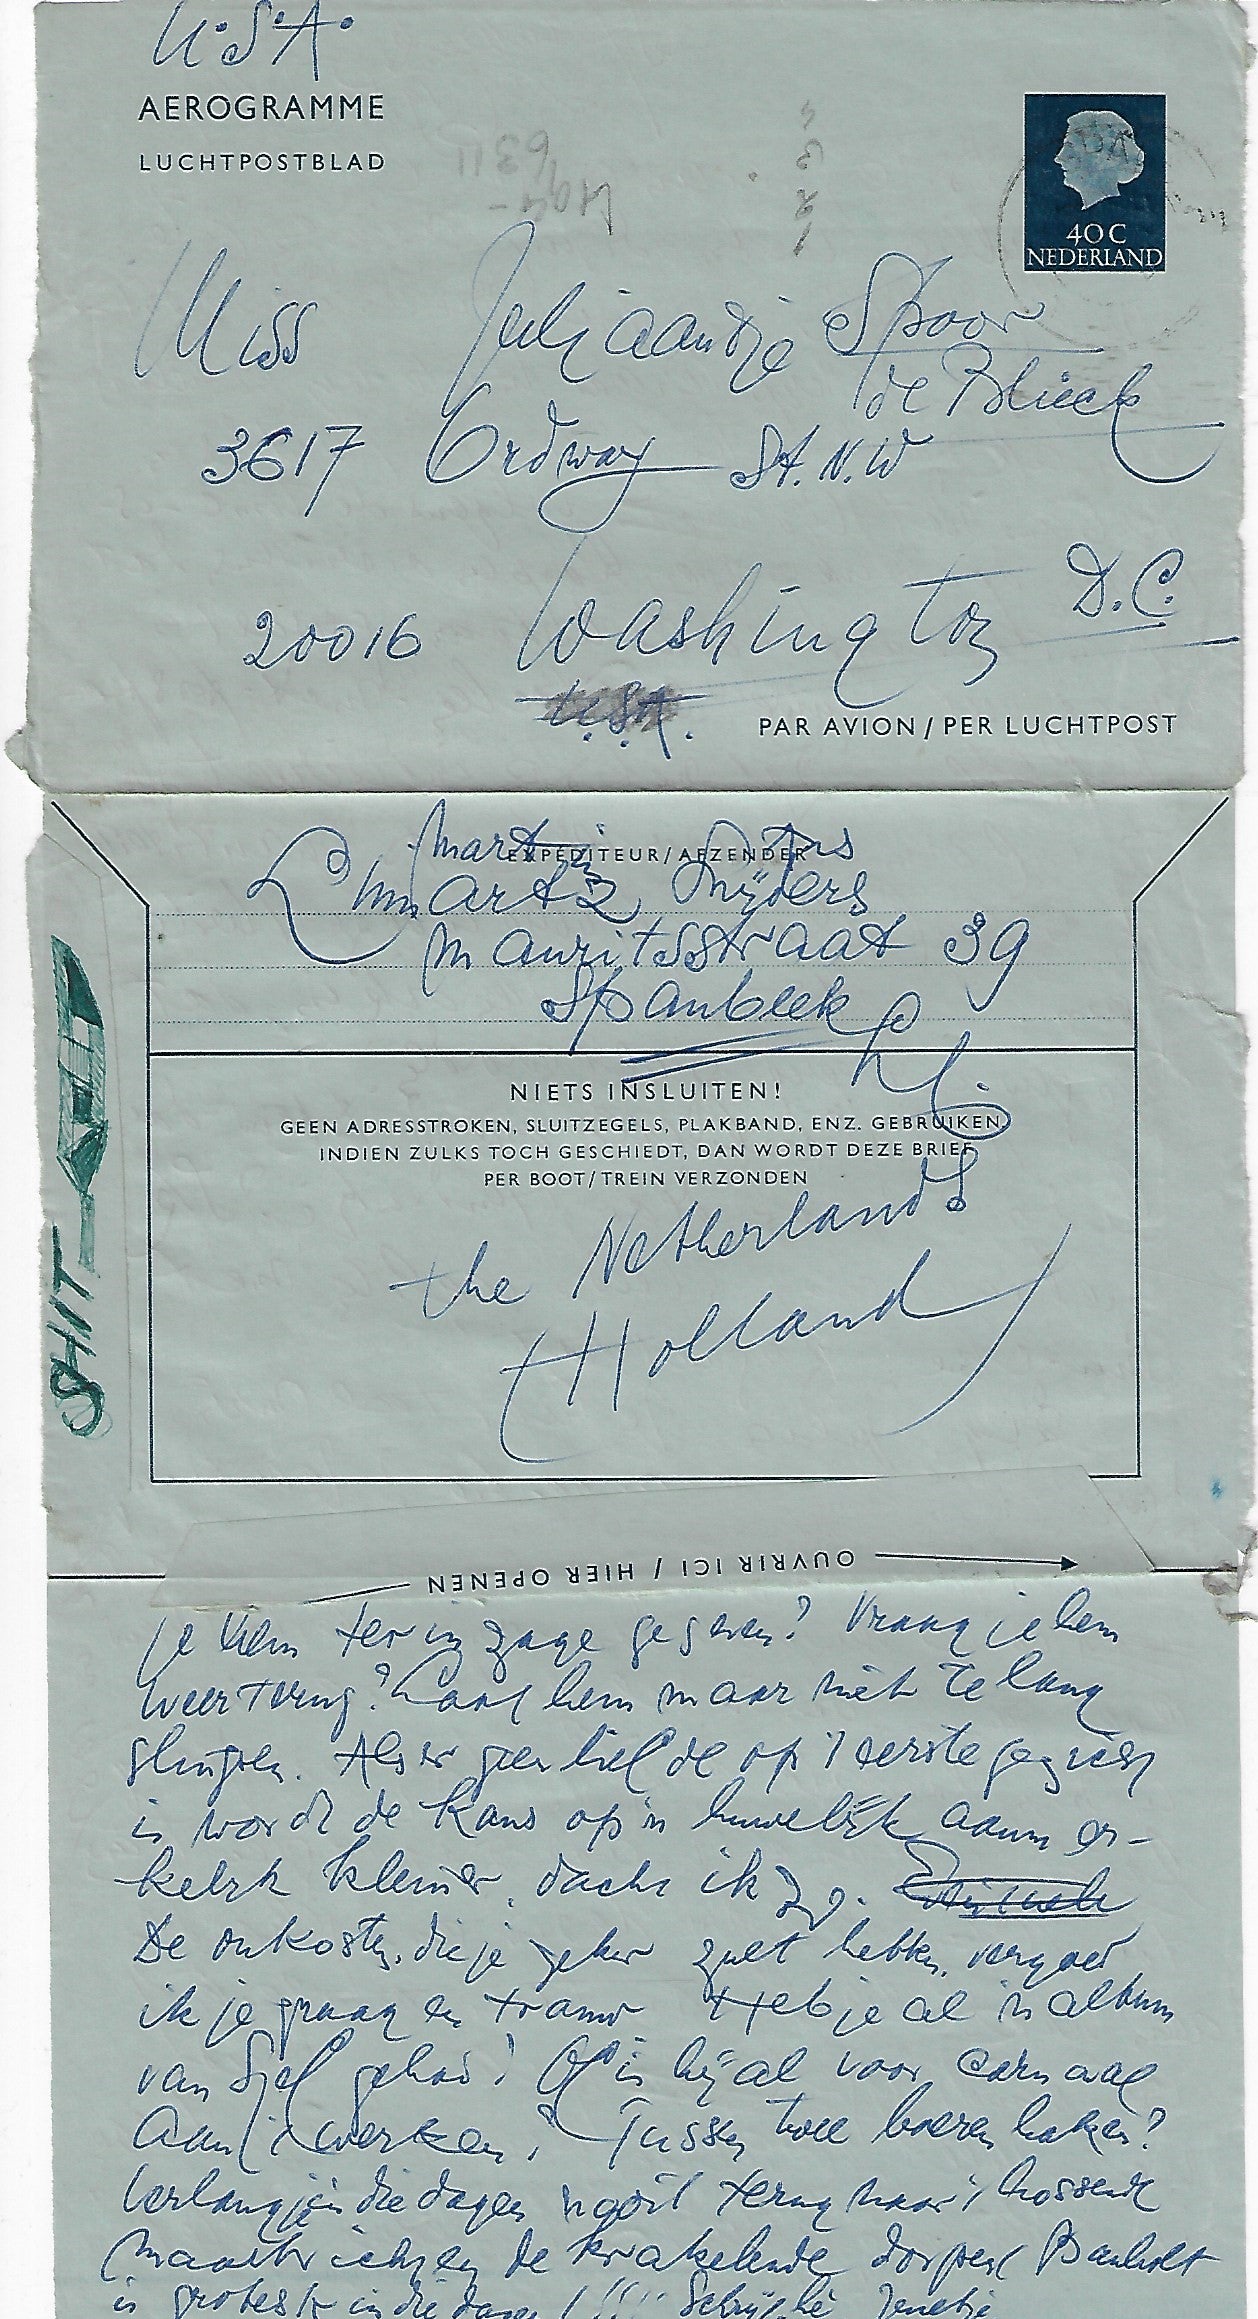 U.S.A.
AEROGRAMME
LUCHTPOSTBLAD
6311
4
3
2
1
40 C
NEDERLAND
Miss Juliaantje Spoor
de Blieck
3617 Ordway St. N.W
20016 Washington D.C.
U.S.A.
PAR AVION / PER LUCHTPOST
EXPÉDITEUR / AFZENDER
Martin
Mauritsstraat 39
Spaubeek
NIETS INSLUITEN!
GEEN ADRESSTROKEN, SLUITZEGELS, PLAKBAND, ENZ. GEBRUIKEN,
INDIEN ZULKS TOCH GESCHIEDT, DAN WORDT DEZE BRIEF
PER BOOT / TREIN VERZONDEN
the Netherlands
Holland
SHIT
OUVRIR ICI / HIER OPENEN
je hem ter inzage gegeven? Vraag je hem
weer terug? Laat hem maar niet te lang
slingeren. Als er geen liefde op 't eerste gezicht
is wordt de kans op 'n huwelijk aanmer-
kelijk kleiner, dacht ik zo.
De onkosten, die je zeker zult hebben, vergoed
ik je graag en Heb je al 'n album
van Sjef gehad? Of is hij al voor carnaval
aan 't werken? Tussen twee boeren haken?
Verlang je in die dagen nooit terug naar 't hossende
Maastricht en de krakelende dorpen Banholt
is grotesk in die dagen !!!! Jenetje